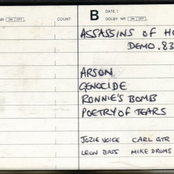 COUNT
B DATE:
DOLBY NR ON OFF
ASSASSINS OF
DEMO. 83
ARSON
GENOCIDE
RONNIE'S BOMB
POETRY OF TEARS
JOZIE VOICE CARL GTR
LEON BASS MIKE DRUMS